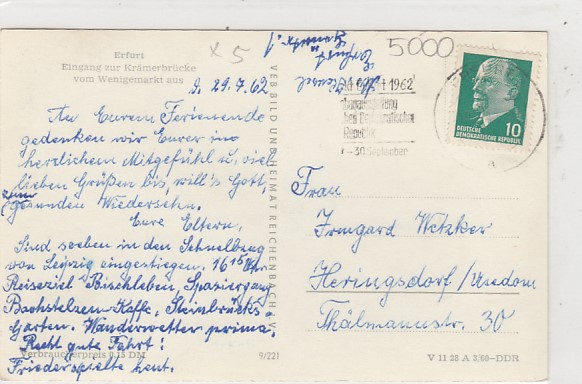 Erfurt
Eingang zur Krämerbrücke
vom Wenigemarkt aus
x 5
5000
d. 29.7.62
An Eurem Ferienende
gedenken wir Eurer in
herzlichem Mitgefühl u. viel
lieben Grüßen bis, will's Gott,
zum
gesunden Wiedersehen.
Eure Eltern.
Sind soeben in den Schnellzug
von Leipzig eingestiegen. 16 15 Uhr
Reiseziel Bischleben, Spaziergang
Bachstelzen-Kaffe, Steinbrücks-
garten. Wanderwetter prima.
Recht gute Fahrt!
Friedel spielte heut.
Verbraucherpreis 0,15 DM
9/221
VEB BILD UND HEIMAT REICHENBACH I. V.
1962
Republik
30. September
DEUTSCHE
DEMOKRATISCHE REPUBLIK
10
Frau
Irmgard Wetzker
Heringsdorf/Usedom
Thälmannstr. 30
V 11 28 A 3/60-DDR